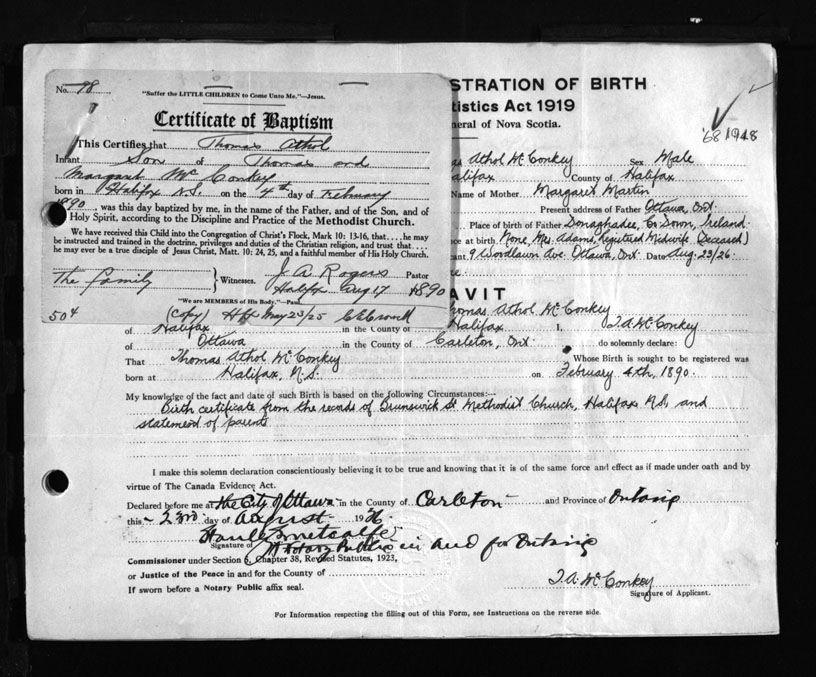 No. 98
"Suffer the LITTLE CHILDREN to Come Unto Me."—Jesus.
Certificate of Baptism
This Certifies that Thomas Athol
Infant Son of Thomas and
Margaret McConkey
born in Halifax N.S. on the 4th day of February
1890, was this day baptized by me, in the name of the Father, and of the Son, and of
Holy Spirit, according to the Discipline and Practice of the Methodist Church.
We have received this Child into the Congregation of Christ's Flock, Mark 10: 13-16, that.... he may
be instructed and trained in the doctrine, privileges and duties of the Christian religion, and trust that....
he may ever be a true disciple of Jesus Christ, Matt. 10: 24, 25, and a faithful member of His Holy Church.
The family } Witnesses. J. A. Rogers Pastor
Halifax Aug 17 1890
"We are MEMBERS of His Body."—Paul.
504 (Copy) Hfx May 23/25
STRATION OF BIRTH
tistics Act 1919
neral of Nova Scotia.
68 1948
as Athol McConkey Sex Male
alifax County of Halifax
Name of Mother Margaret Martin
Present address of Father Ottawa, Ont.
Place of birth of Father Donaghadee, Co Down, Ireland.
ce at birth None, Mrs. Adams, Registered Midwife (Deceased)
ant 9 Woodlawn Ave. Ottawa, Ont Date Aug. 23/26.
AVIT
Thomas Athol McConkey
of Halifax in the County of Halifax I, T.A. McConkey
of Ottawa in the County of Carleton, Ont do solemnly declare:
That Thomas Athol McConkey Whose Birth is sought to be registered was
born at Halifax, N.S. on February 4th, 1890.
My knowledge of the fact and date of such Birth is based on the following Circumstances:—
Birth certificate from the records of Brunswick St Methodist Church, Halifax N.S, and
statement of parents
I make this solemn declaration conscientiously believing it to be true and knowing that it is of the same force and effect as if made under oath and by
virtue of The Canada Evidence Act.
Declared before me at the City of Ottawa in the County of Carleton and Province of Ontario
this 23rd day of August 1926
Signature of
A Notary Public in and for Ontario
Commissioner under Section 6, Chapter 38, Revised Statutes, 1923,
or Justice of the Peace in and for the County of
If sworn before a Notary Public affix seal.
T.A. McConkey
Signature of Applicant.
For Information respecting the filling out of this Form, see Instructions on the reverse side.